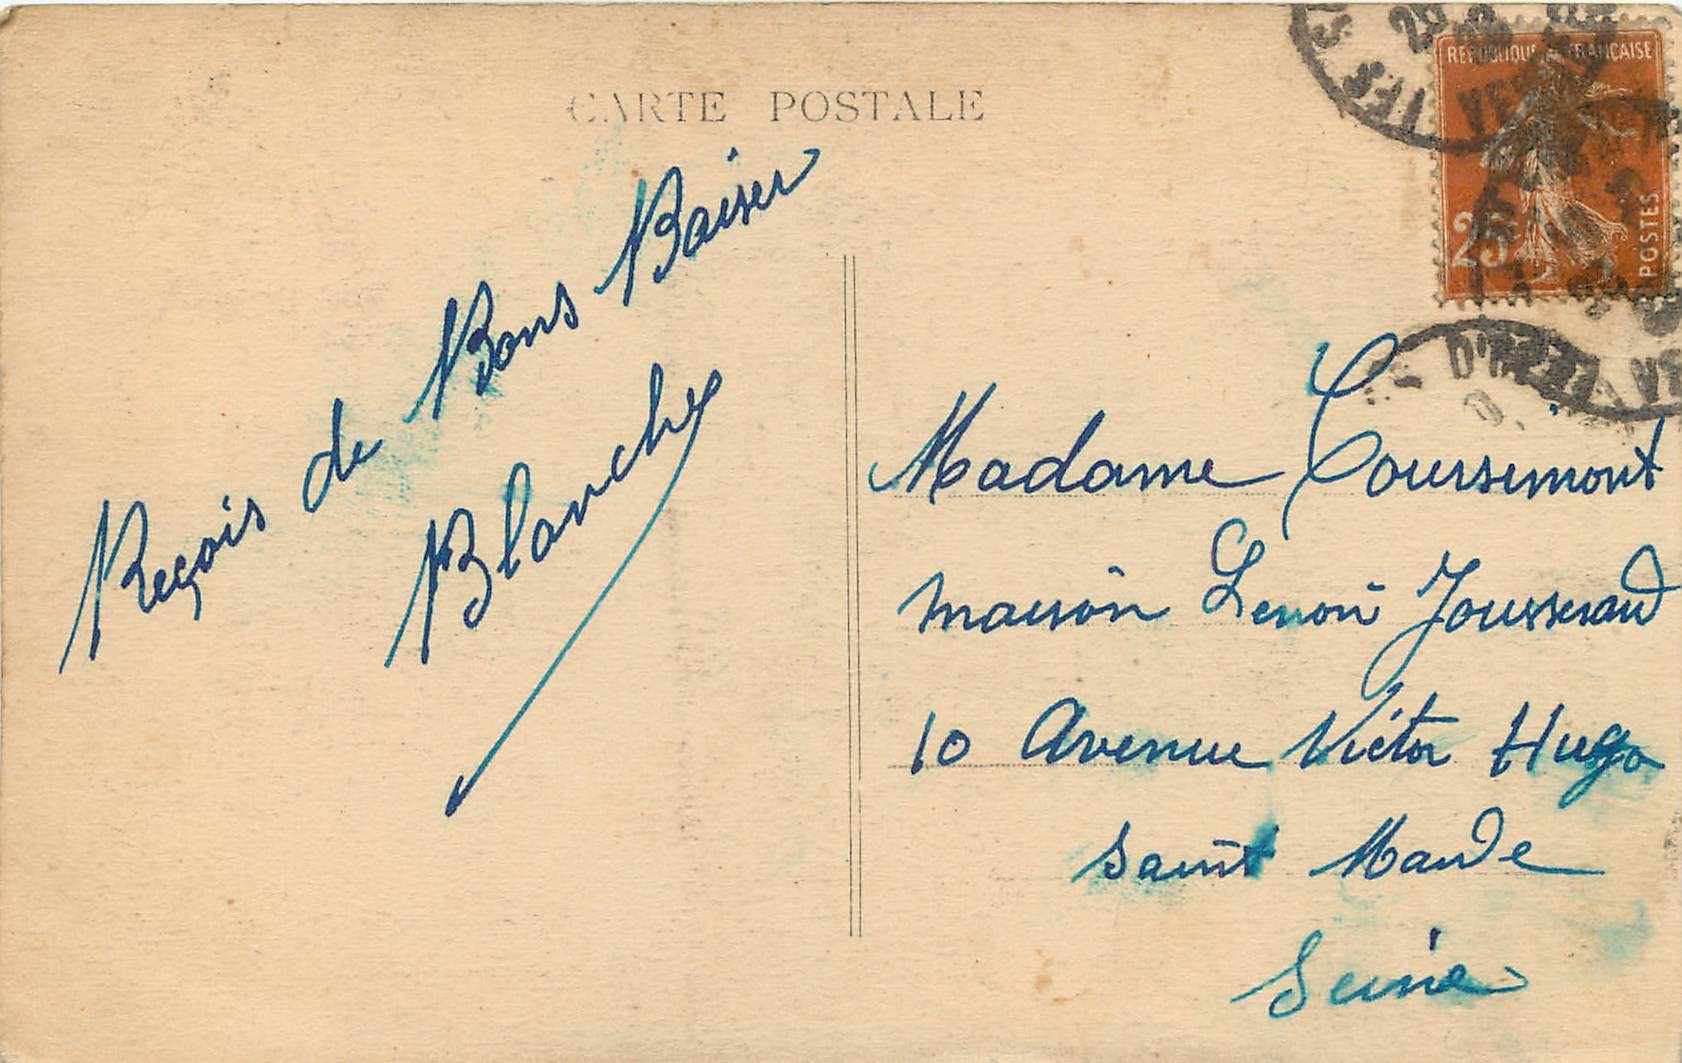 CARTE POSTALE
REPUBLIQUE FRANCAISE
25
POSTES
Reçois de Bons Baiser
Blanche
Madame Coursimont
maison Lenoir
10 Avenue Victor Hugo
Saint Mande
Seine